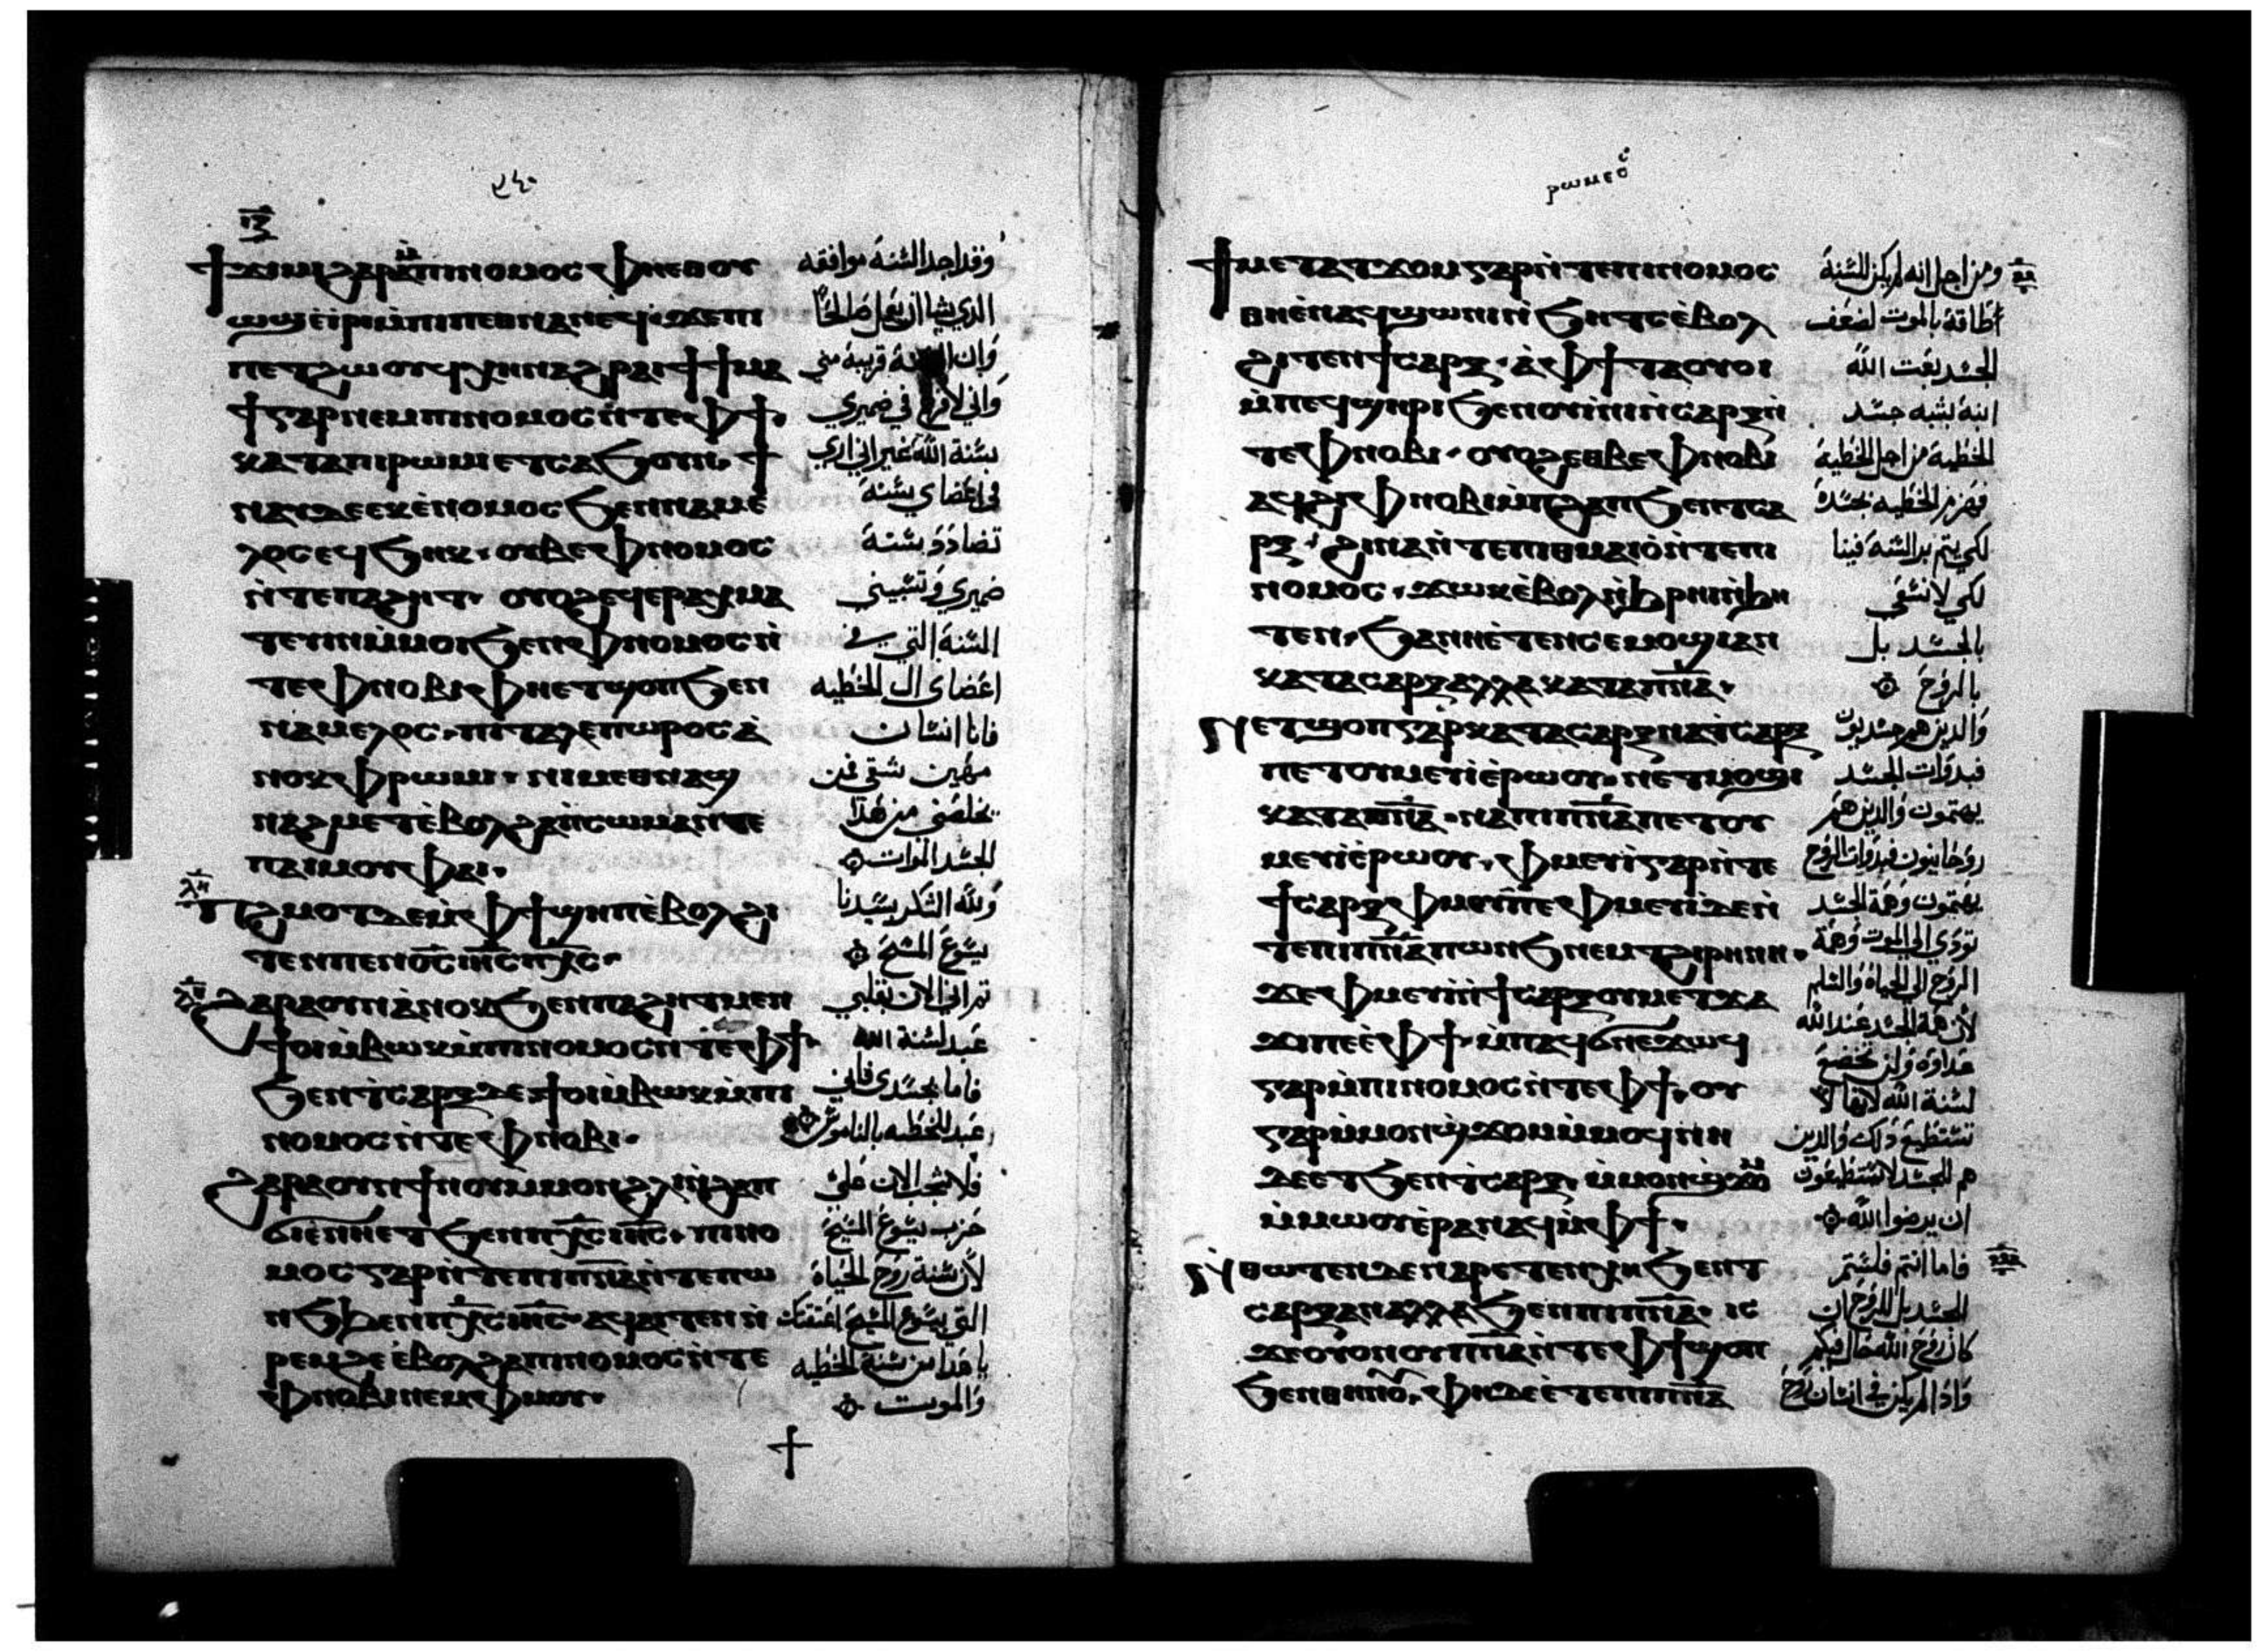 ϥⲋ
ⲓⲍ
ϯϫⲓⲙⲓ ϩⲁⲣⲁ ⲙ̀ⲡⲓⲛⲟⲙⲟⲥ ⲫⲏⲉⲑⲟⲩ
ⲱϣ ⲉ̀ⲓⲣⲓ ⲙ̀ⲡⲓⲡⲉⲑⲛⲁⲛⲉϥ· ϫⲉ ⲡⲓ
ⲡⲉⲧϩⲱⲟⲩ ϥⲭⲏ ⲛⲁϩⲣⲁⲓ ϯϯⲙⲁ
ϯ ⲅⲁⲣ ⲛⲉⲙ ⲡⲓⲛⲟⲙⲟⲥ ⲛ̀ⲧⲉ ⲫϯ·
ⲕⲁⲧⲁ ⲡⲓⲣⲱⲙⲓ ⲉⲧⲥⲁϧⲟⲩⲛ· ϯ
ⲛⲁⲩ ⲇⲉ ⲉⲕⲉⲛⲟⲙⲟⲥ ϧⲉⲛ ⲛⲁⲙⲉ
ⲗⲟⲥ ⲉϥϧⲏⲕ· ⲟⲩⲃⲉ ⲫⲛⲟⲙⲟⲥ
ⲛ̀ⲧⲉ ⲡⲁϩⲏⲧ· ⲟⲩⲟϩ ⲉϥⲉⲣⲁⲭⲙⲁ
ⲧⲉⲩⲓⲛ ⲙ̀ⲙⲟⲓ ϧⲉⲛ ⲫⲛⲟⲙⲟⲥ ⲛ̀
ⲧⲉ ⲫⲛⲟⲃⲓ ⲫⲏⲉⲧϣⲟⲡ ϧⲉⲛ
ⲛⲁⲙⲉⲗⲟⲥ· ⲡⲓⲧⲁⲗⲉⲡⲱⲣⲟⲥ ⲁ̀
ⲛⲟⲕ ⲫⲣⲱⲙⲓ· ⲛⲓⲙ ⲉⲑⲛⲁϣ
ⲛⲁϩⲙⲉⲧ ⲉ̀ⲃⲟⲗ ϩⲁ ⲡⲓⲥⲱⲙⲁ ⲛⲧⲉ
ⲡⲁⲓⲙⲟⲩ ⲫⲁⲓ·
ⲗⲏ
ⲡϩⲙⲟⲧ ⲇⲉ ⲙ̀ⲫϯ ϣⲏⲡ ⲉ̀ⲃⲟⲗ ϩⲓ
ⲧⲉⲛ ⲡⲉⲛⲟ̅ⲥ̅ ⲓⲏ̅ⲥ̅ ⲡⲭ̅ⲥ̅·
ϩⲁⲣⲁ ⲟⲩⲛ ⲁ̀ⲛⲟⲕ ϧⲉⲛ ⲡⲁϩⲏⲧ ⲙⲉⲛ
ϯⲟⲓ ⲙ̀ⲃⲱⲕ ⲙ̀ⲡⲓⲛⲟⲙⲟⲥ ⲛ̀ⲧⲉ ⲫϯ·
ϧⲉⲛ ϯⲥⲁⲣⲝ ⲇⲉ ϯⲟⲓ ⲙ̀ⲃⲱⲕ ⲙ̀ⲡⲓ
ⲛⲟⲙⲟⲥ ⲛ̀ⲧⲉ ⲫⲛⲟⲃⲓ·
ϩⲁⲣⲁ ⲟⲩⲛ ϯⲛⲟⲩ ⲙⲙⲟⲛ ϩⲗⲓ ⲛ̀ϩⲁⲡ
ϭⲓ ⲉ̀ⲛⲏⲉⲧϧⲉⲛ ⲡⲭ̅ⲥ̅ ⲓⲏ̅ⲥ̅· ⲡⲓⲛⲟ
ⲙⲟⲥ ⲅⲁⲣ ⲛ̀ⲧⲉ ⲡⲓⲡ̅ⲛ̅ⲁ̅ ⲛ̀ⲧⲉ ⲡⲱ
ⲛϧ ϧⲉⲛ ⲡⲭ̅ⲥ̅ ⲓⲏ̅ⲥ̅· ⲁϥⲁⲓⲧⲉⲛ ⲛ̀
ⲣⲉⲙϩⲉ ⲉ̀ⲃⲟⲗ ϩⲁ ⲡⲓⲛⲟⲙⲟⲥ ⲛ̀ⲧⲉ
ⲫⲛⲟⲃⲓ ⲛⲉⲙ ⲫⲙⲟⲩ·
وقد اجد السنة موافقه
الذي يشا ان يعمل صالحًا
وان قريبة مني
واني لافرح في ضميري
بسنة الله غير اني اري
في اعضاي سنة
تضادد سنة
ضميري وتسبيني
السنة التي في
اعضاى الـ الخطيه
فانا انسان
مهين شقي فمن
يخلصني من هذا
الجسد الموات
ولله الشكر بسيدنا
يسوع المسيح
تراني الان بقلبي
عبد لسنة الله
فاما بجسدى فاني
عبد الخطيه بالناموس
فلا شجب الان على
حزب يسوع المسيح
لأن سنة روح الحياة
التي بيسوع المسيح اعتقتك
يا هذا من سنة الخطيه
والموت
ⲣⲱⲙⲉⲟⲥ
ϯⲙⲉⲧⲁⲧϫⲟⲙ ⲅⲁⲣ ⲛ̀ⲧⲉ ⲡⲓⲛⲟⲙⲟⲥ
ⲑⲏ ⲉ̀ⲛⲁϥϣⲱⲛⲓ ⲛ̀ϧⲏⲧⲥ ⲉ̀ⲃⲟⲗ
ϩⲓⲧⲉⲛ ϯⲥⲁⲣⲝ· ⲁ̀ ⲫϯ ⲧⲁⲟⲩⲟ
ⲙ̀ⲡⲉϥϣⲏⲣⲓ ϧⲉⲛ ⲟⲩⲓⲛⲓ ⲛ̀ⲥⲁⲣⲝ ⲛ̀
ⲧⲉ ⲫⲛⲟⲃⲓ· ⲟⲩⲟϩ ⲉⲑⲃⲉ ⲫⲛⲟⲃⲓ
ⲁϥϩⲓ ⲫⲛⲟⲃⲓ ⲙ̀ⲡϩⲁⲡ ϧⲉⲛ ⲧⲥⲁ
ⲣⲝ· ϩⲓⲛⲁ ⲛ̀ⲧⲉ ⲡⲓⲑⲙⲁⲓⲟ̀ ⲛ̀ⲧⲉ ⲡⲓ
ⲛⲟⲙⲟⲥ· ϫⲱⲕ ⲉ̀ⲃⲟⲗ ⲛ̀ϧⲣⲏⲓ ⲛ̀ϧⲏ
ⲧⲉⲛ· ϧⲁ ⲛⲏ ⲉ̀ⲧⲉⲛⲥⲉⲙⲟϣⲓ ⲁⲛ
ⲕⲁⲧⲁ ⲥⲁⲣⲝ ⲁⲗⲗⲁ ⲕⲁⲧⲁ ⲡ̅ⲛ̅ⲁ̅·
ⲛⲏⲉⲧϣⲟⲡ ⲅⲁⲣ ⲕⲁⲧⲁ ⲥⲁⲣⲝ ⲛⲁ ϯⲥⲁⲣⲝ
ⲡⲉⲧⲟⲩⲙⲉⲩⲓ ⲉ̀ⲣⲱⲟⲩ· ⲛⲉⲧⲙⲟϣⲓ
ⲕⲁⲧⲁ ⲡ̅ⲛ̅ⲁ̅· ⲛⲁ ⲡⲓⲡ̅ⲛ̅ⲁ̅ ⲡⲉⲧⲟⲩ
ⲙⲉⲩⲓ ⲉ̀ⲣⲱⲟⲩ· ⲫⲙⲉⲩⲓ ⲅⲁⲣ ⲛ̀ⲧⲉ
ϯⲥⲁⲣⲝ ⲫⲙⲟⲩ ⲡⲉ ⲫⲙⲉⲩⲓ ⲇⲉ ⲛ̀
ⲧⲉ ⲡⲓⲡ̅ⲛ̅ⲁ̅ ⲡⲱⲛϧ ⲛⲉⲙ ⲧϩⲓⲣⲏⲛⲏ·
ϫⲉ ⲫⲙⲉⲩⲓ ⲛ̀ϯⲥⲁⲣⲝ ⲟⲩⲙⲉⲧϫⲁ
ϫⲓ ⲡⲉ ⲉ̀ⲫϯ· ⲙ̀ⲡⲁϥϭⲛⲉϫⲱϥ
ⲅⲁⲣ ⲙ̀ⲡⲓⲛⲟⲙⲟⲥ ⲛ̀ⲧⲉ ⲫϯ· ⲟⲩ
ⲅⲁⲣ ⲙ̀ⲙⲟⲛ ϣϫⲟⲙ ⲙ̀ⲙⲟϥ ⲛⲏ
ⲇⲉ ⲉⲧϧⲉⲛ ϯⲥⲁⲣⲝ· ⲙ̀ⲙⲟⲛ ϣϫⲟⲙ
ⲙ̀ⲙⲱⲟⲩ ⲉ̀ⲣⲁⲛⲁϥ ⲙ̀ⲫϯ·
ⲛⲑⲱⲧⲉⲛ ⲇⲉ ⲛⲁⲣⲉⲧⲉⲛⲭⲏ ϧⲉⲛ ⲧ
ⲥⲁⲣⲝ ⲁⲛ ⲁⲗⲗⲁ ϧⲉⲛ ⲡⲓⲡ̅ⲛ̅ⲁ̅· ⲓⲥ
ϫⲉ ⲟⲩⲟⲛ ⲟⲩⲡ̅ⲛ̅ⲁ̅ ⲛ̀ⲧⲉ ⲫϯ ϣⲟⲡ
ϧⲉⲛ ⲑⲏⲛⲟⲩ· ⲫⲏ ⲇⲉ ⲉ̀ⲧⲉ ⲡⲓⲡ̅ⲛ̅ⲁ̅
ومن اجل انه لم يكن للسنة
أطاقة بالموت لضعف
الجسد بعث الله
ابنه بشبه جسد
الخطية من اجل الخطية
فهزم الخطيه بجسده
لكي يتم بر السنة فينا
لكي لا نسعى
بالجسد بل
بالروح
والذين هم جسديون
فبذوات الجسد
يهتمون والذين هم
روحانيون فبذوات الروح
يهتمون وهمة الجسد
تودي الي الموت وهمة
الروح الي الحياة والسلم
لأن همة الجسد عند الله
عداوة ولن تخضع
لسنة الله لانها لا
تستطيع ذلك والذين
هم للجسد لا يستطيعون
ان يرضوا الله
فاما انتم فلستم
للجسد بل للروح ان
كان روح الله حال فيكم
واذا لم يكن في انسان روح